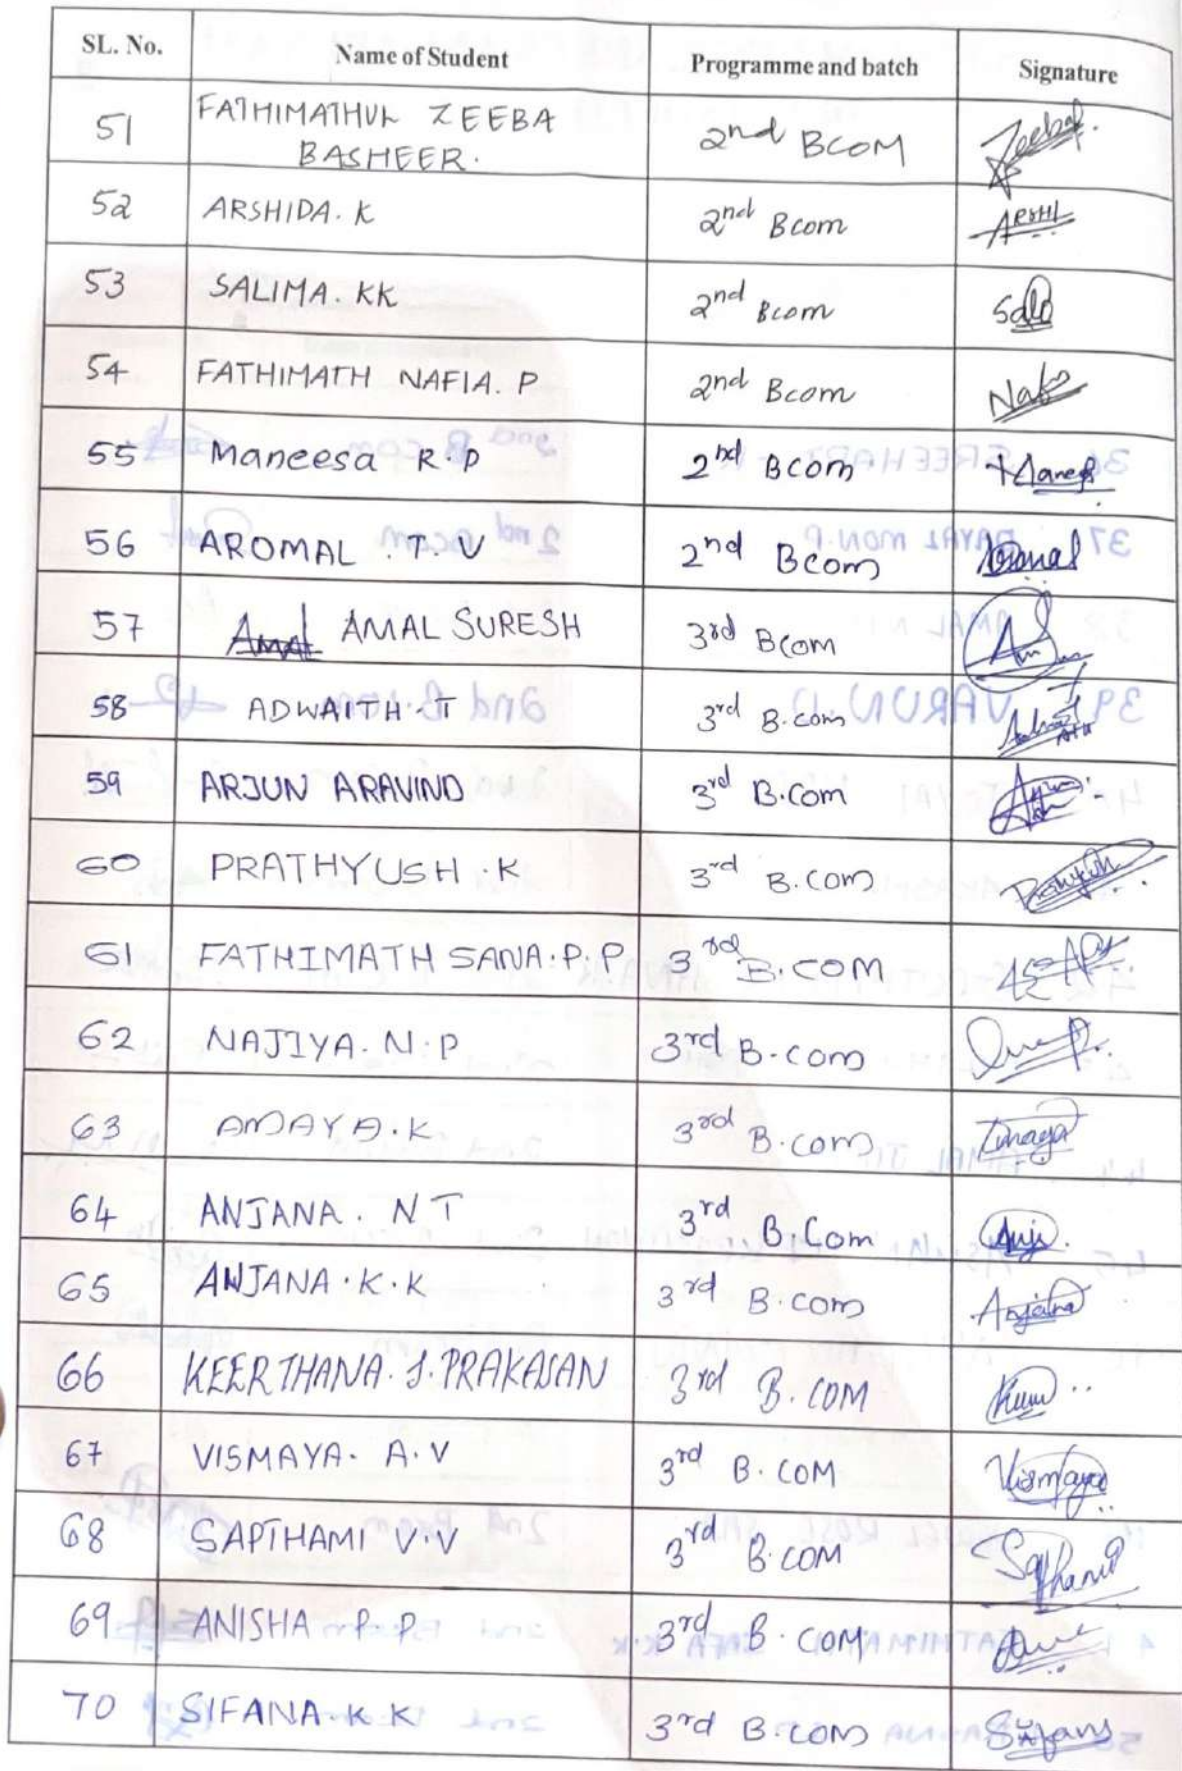 SL. No. Name of Student Programme and batch Signature
51 FATHIMATHUL ZEEBA 2nd BCOM Zeeba
BASHEER.
52 ARSHIDA. K 2nd Bcom ARSHI
53 SALIMA. KK 2nd Bcom
54 FATHIMATH NAFIA. P 2nd Bcom
55 Maneesa R.P 2nd Bcom
56 AROMAL . T. V 2nd Bcom Aromal
57 AMAL SURESH 3rd BCom
58 ADWAITH. T 3rd B.com
59 ARJUN ARAVIND 3rd B.Com
60 PRATHYUSH . K 3rd B.COM
61 FATHIMATH SANA. P. P 3rd B.COM
62 NAJIYA. N. P 3rd B.com
63 AMAYA. K 3rd B.com
64 ANJANA. N T 3rd B.Com Anju.
65 ANJANA. K. K 3rd B.com Anjana
66 KEERTHANA. J. PRAKASAN 3rd B.COM
67 VISMAYA. A. V 3rd B.COM Vismaya
68 SAPTHAMI V.V 3rd B.COM Sapthami
69 ANISHA P. P 3rd B.COM
70 SIFANA. K K 3rd B.COM Sifana